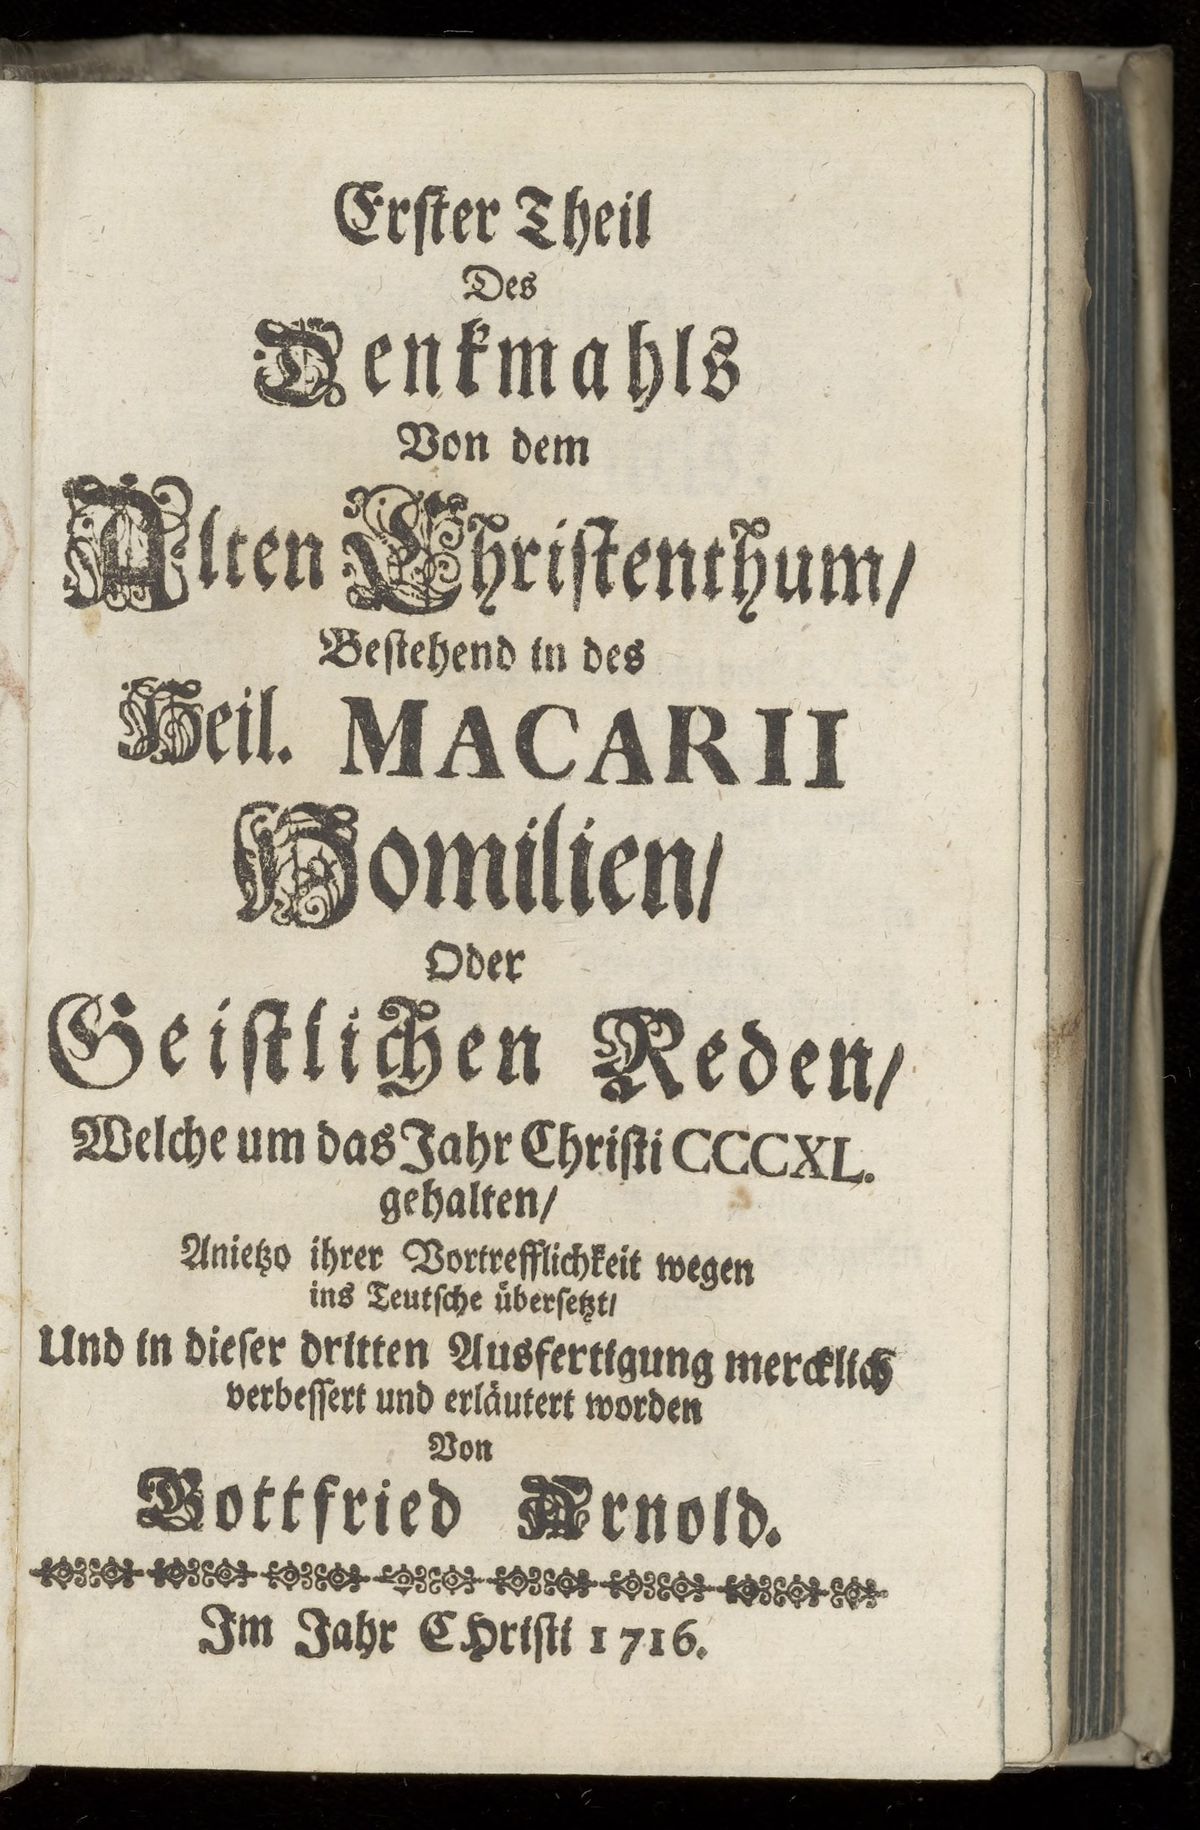 Erster Theil
Des
Denkmahls
Von dem
Alten Christenthum/
Bestehend in des
Heil. MACARII
Homilien/
Oder
Geistlichen Reden/
Welche um das Jahr Christi CCCXL.
gehalten/
Anietzo ihrer Vortrefflichkeit wegen
ins Teutsche übersetzt/
Und in dieser dritten Ausfertigung mercklich
verbessert und erläutert worden
Von
Gottfried Arnold.
Im Jahr CHristi 1716.